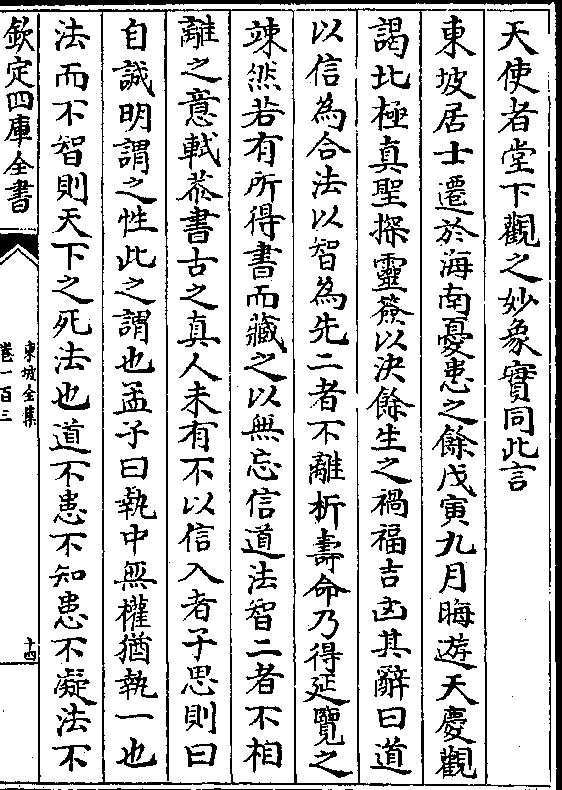 天使者堂下觀之妙象實同此言
東坡居士遷於海南憂患之餘戊寅九月晦遊天慶觀
謁北極真聖探靈籤以決餘生之禍福吉凶其辭曰道
以信為合法以智為先二者不離析壽命乃得延覽之
竦然若有所得書而藏之以無忘信道法智二者不相
離之意軾恭書古之真人未有不以信入者子思則曰
自誠明謂之性此之謂也孟子曰執中無權猶執一也
法而不智則天下之死法也道不患不知患不凝法不
欽定四庫全書
東坡全集
卷一百三
十四